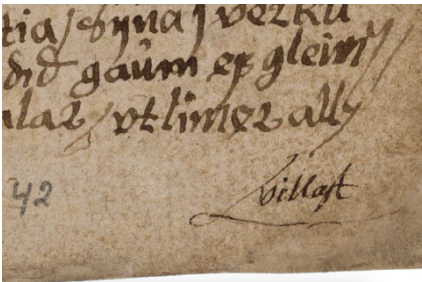 tia/ sýna j verku
did gaum ef gleim
alar / vt limer all
villast
42